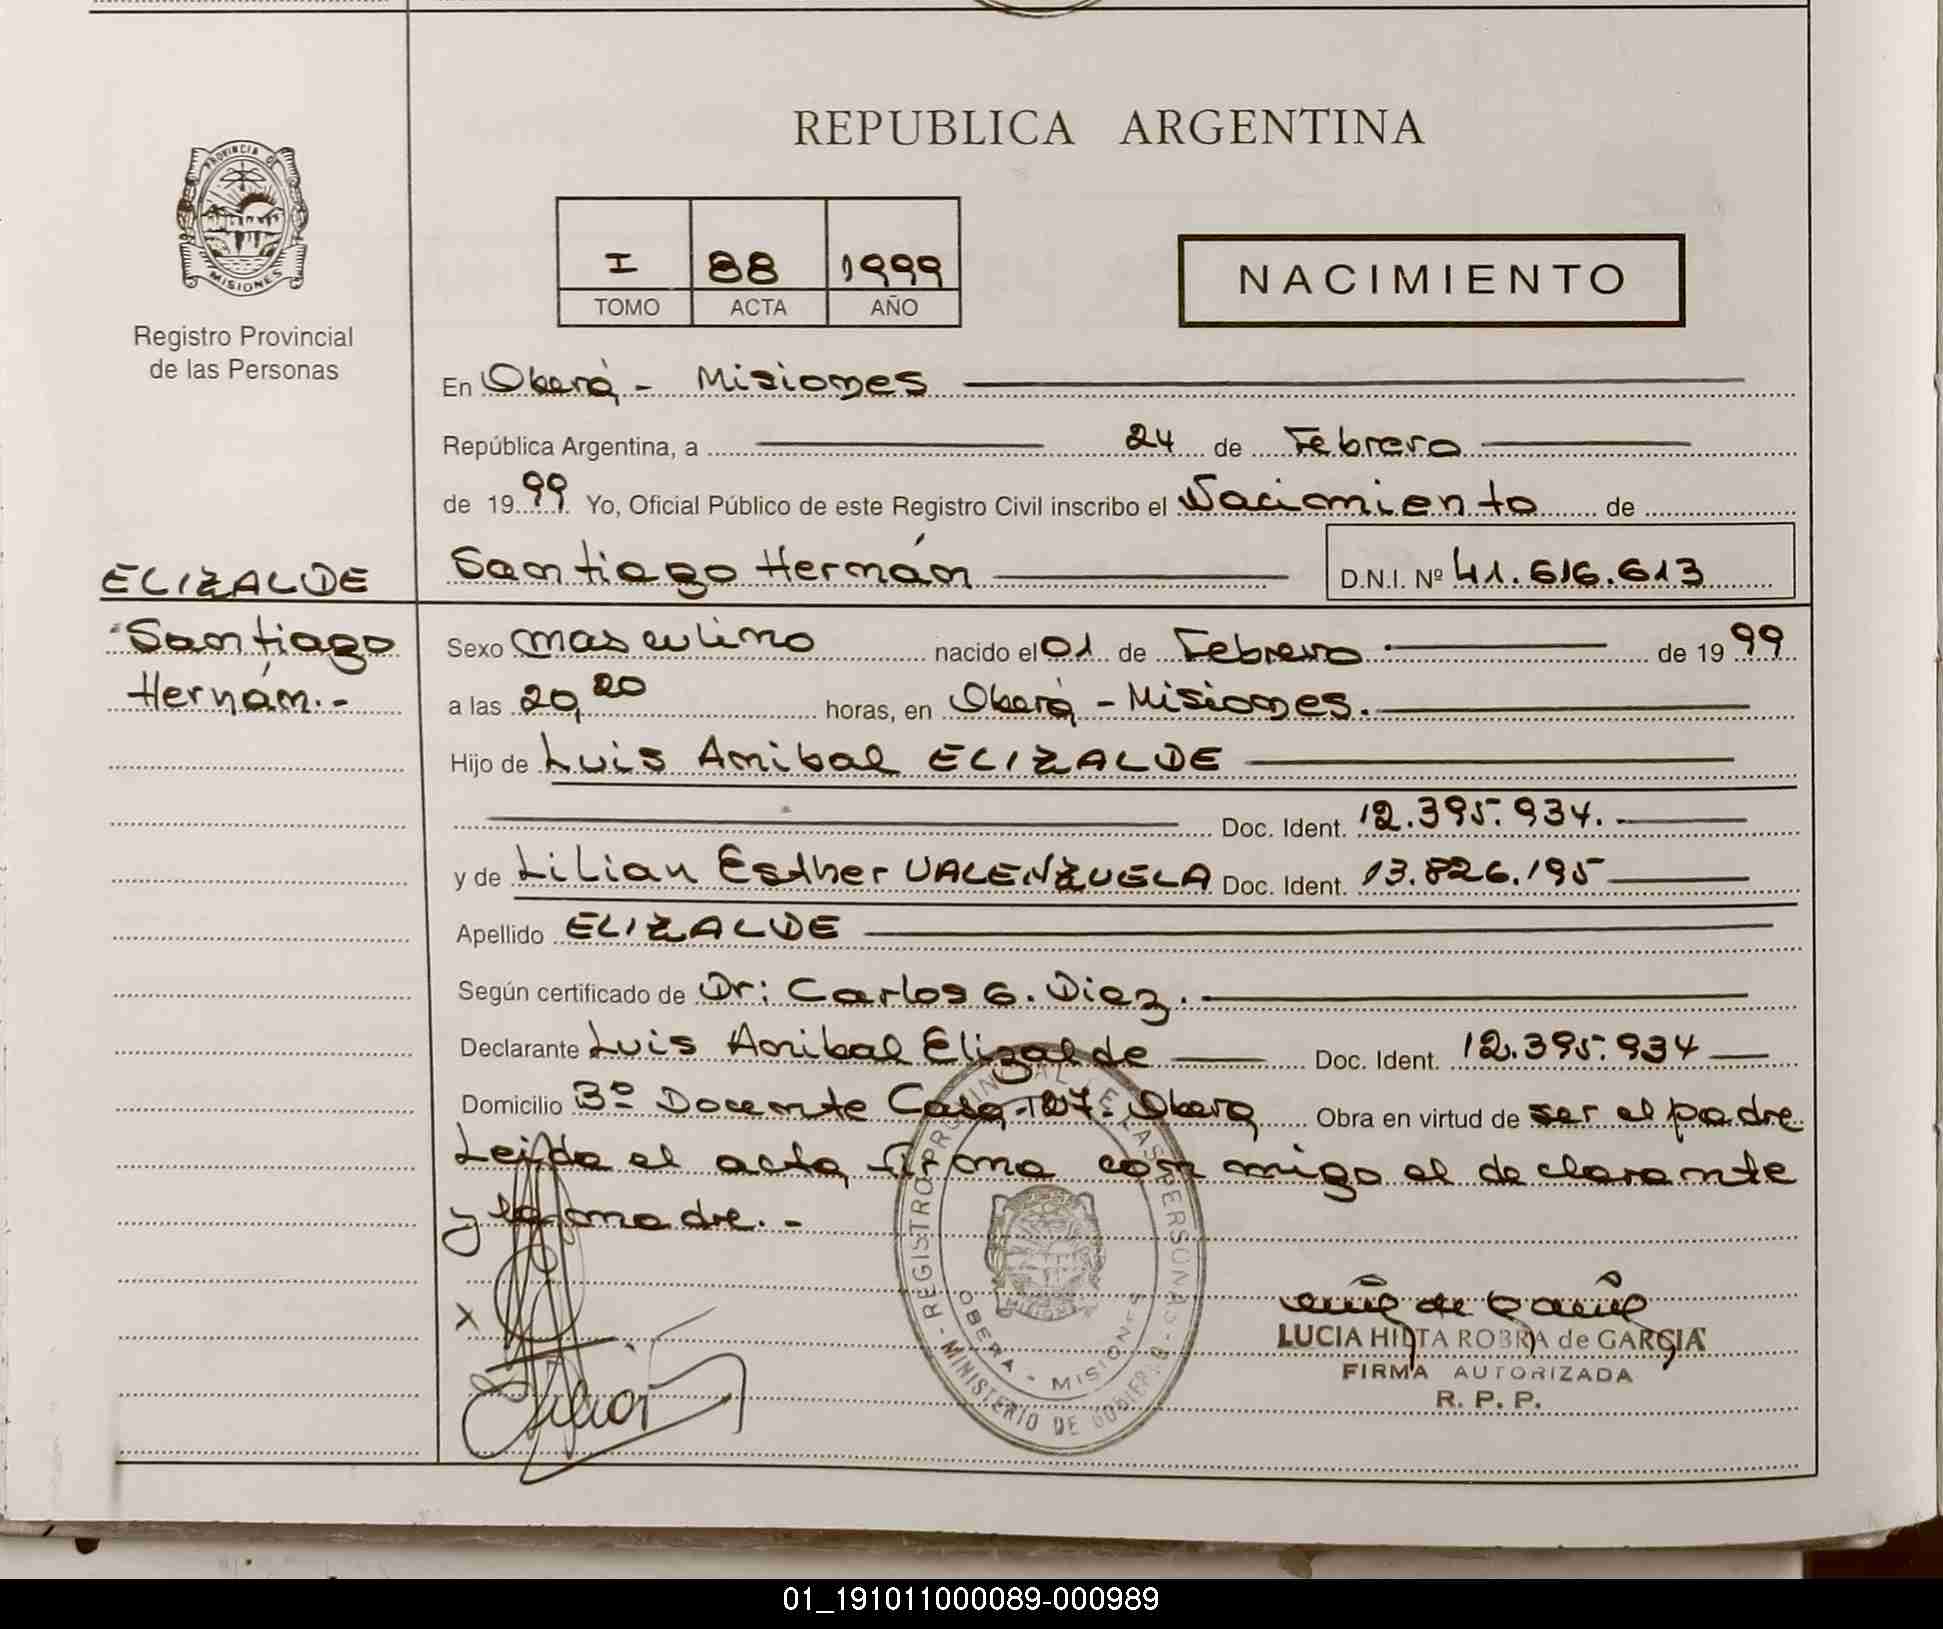 REPUBLICA ARGENTINA
PROVINCIA DE
MISIONES
Registro Provincial
de las Personas
I 88 1999
TOMO ACTA AÑO
NACIMIENTO
En Oberá - Misiones
República Argentina, a 24 de Febrero
de 1999 Yo, Oficial Público de este Registro Civil inscribo el Nacimiento de
Santiago Hernán D.N.I. Nº 41.616.613
ELIZALDE
Santiago
Hernán.-
Sexo masculino nacido el 01 de Febrero de 1999
a las 20,20 horas, en Oberá - Misiones.
Hijo de Luis Anibal ELIZALDE
Doc. Ident. 12.395.934.
y de Lilian Esther VALENZUELA Doc. Ident. 13.826.195
Apellido ELIZALDE
Según certificado de Dr: Carlos G. Diez.
Declarante Luis Anibal Elizalde Doc. Ident. 12.395.934
Domicilio Bº Docente Casa 127- Obera Obra en virtud de ser el padre
Leida el acta firma con migo el declarante
y la madre.-
REGISTRO PROVINCIAL DE LAS PERSONAS
OBERA - MISIONES
MINISTERIO DE GOBIERNO
X
LUCIA HILTA ROBRA de GARCIA
FIRMA AUTORIZADA
R. P. P.
01_191011000089-000989